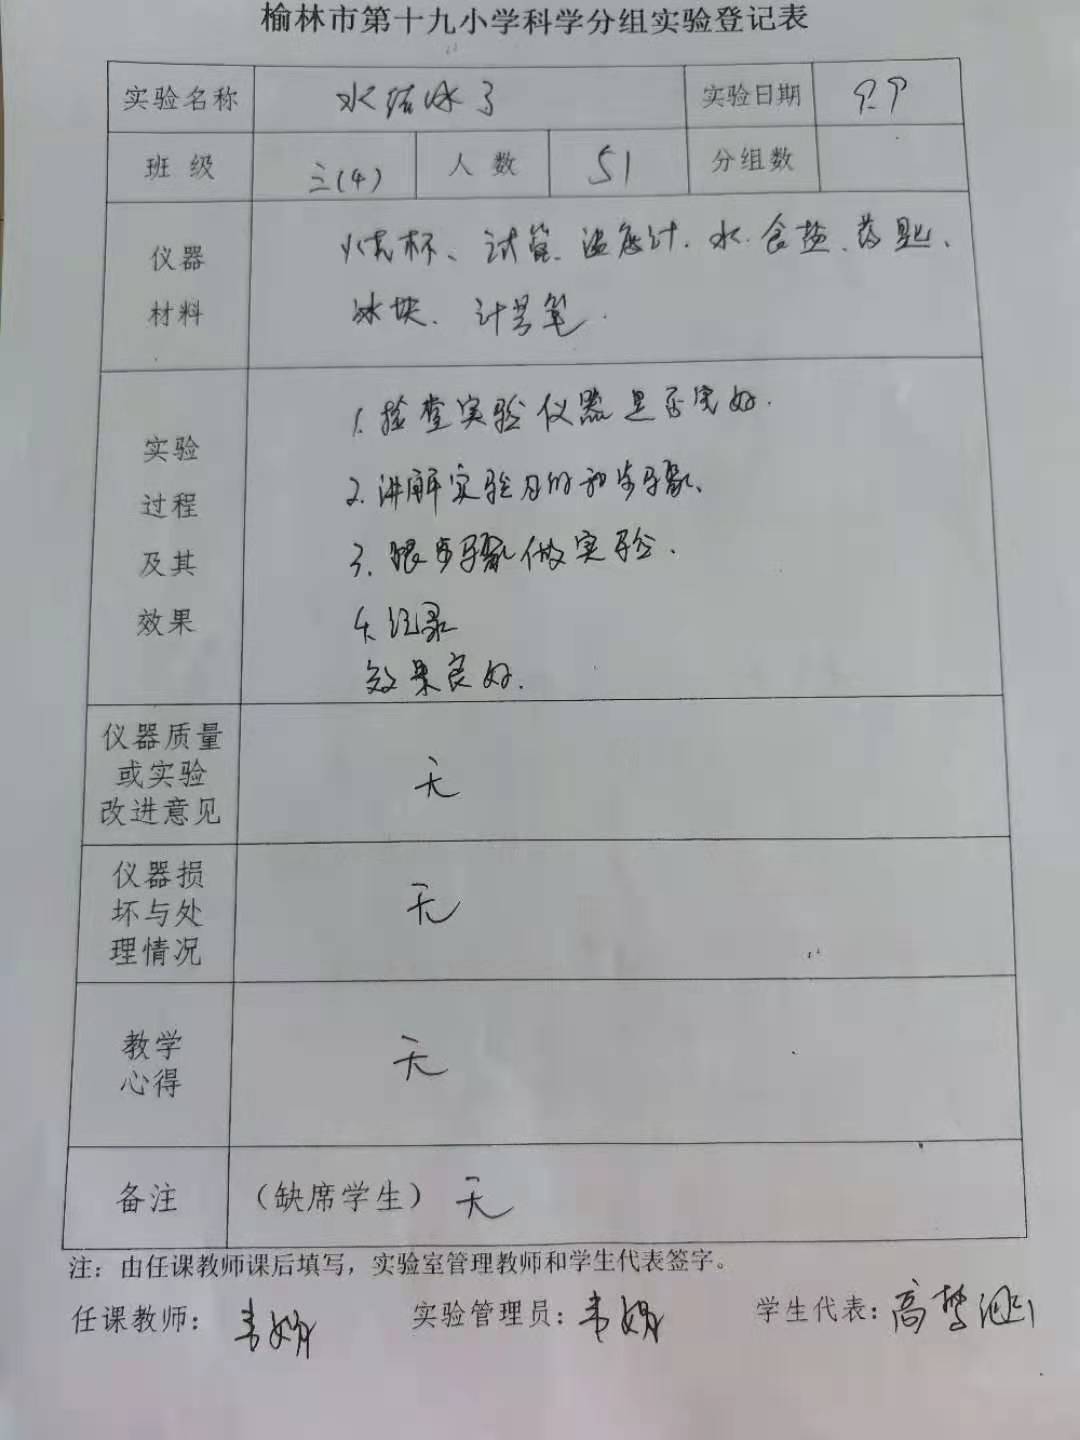 榆林市第十九小学科学分组实验登记表
实验名称 水结冰了 实验日期 9.9
班 级 三(4) 人 数 51 分组数
仪器
材料
烧杯、试管、温度计、水、食盐、药匙、
冰块、计号笔.
实验
过程
及其
效果
1.检查实验仪器是否完好.
2.讲解实验目的和步骤、
3.跟步骤做实验.
4.记录
效果良好.
仪器质量
或实验
改进意见
无
仪器损
坏与处
理情况
无
教学
心得
无
备注 (缺席学生) 无
注：由任课教师课后填写，实验室管理教师和学生代表签字。
任课教师： 韦娟 实验管理员：韦娟 学生代表：高梦